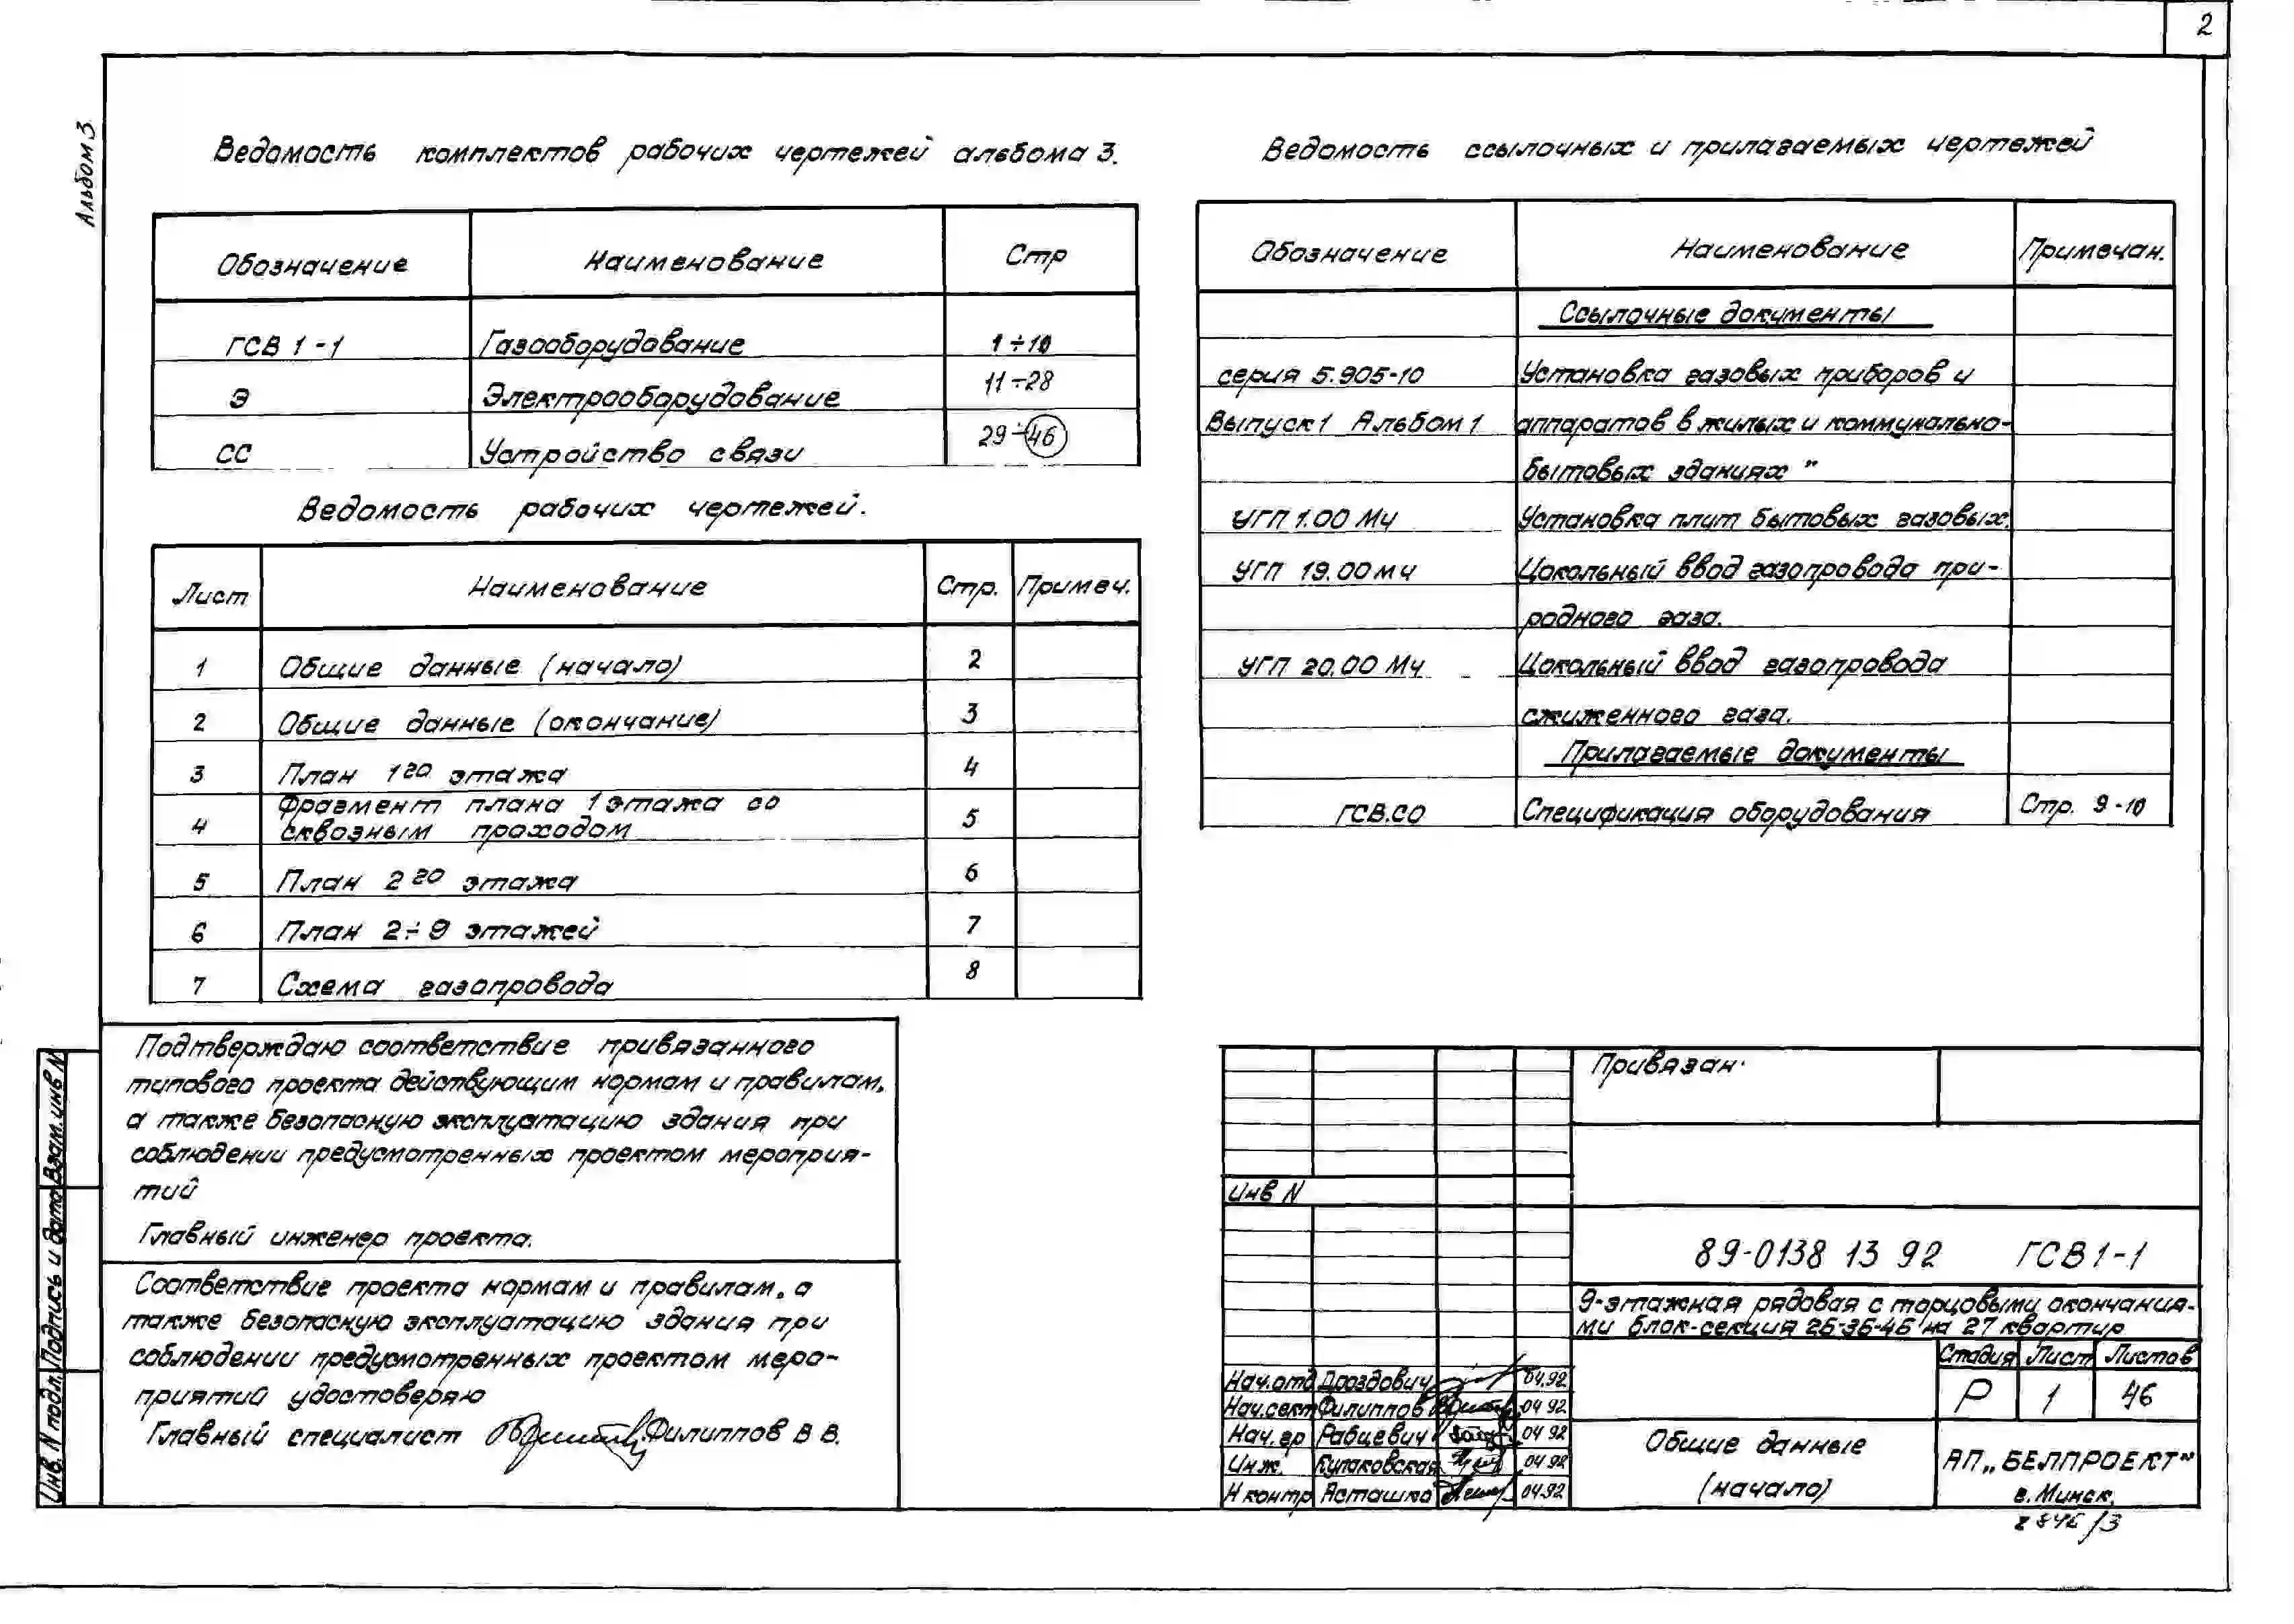 2
Альбом 3
Ведомость комплектов рабочих чертежей альбома 3.
Обозначение Наименование Стр
ГСВ 1-1 Газооборудование 1÷10
Э Электрооборудование 11÷28
СС Устройство связи 29÷46
Ведомость рабочих чертежей.
Лист Наименование Стр. Примеч.
1 Общие данные (начало) 2
2 Общие данные (окончание) 3
3 План 1го этажа 4
4 Фрагмент плана 1 этажа со
сквозным проходом 5
5 План 2го этажа 6
6 План 2÷9 этажей 7
7 Схема газопровода 8
Ведомость ссылочных и прилагаемых чертежей
Обозначение Наименование Примечан.
Ссылочные документы
серия 5.905-10 Установка газовых приборов и
Выпуск 1 Альбом 1 аппаратов в жилых и коммунально-
бытовых зданиях"
УГП 1.00 МЧ Установка плит бытовых газовых.
УГП 19.00 МЧ Цокольный ввод газопровода при-
родного газа.
УГП 20.00 МЧ Цокольный ввод газопровода
сжиженного газа.
Прилагаемые документы
ГСВ.СО Спецификация оборудования Стр. 9-10
Подтверждаю соответствие привязанного
типового проекта действующим нормам и правилам,
а также безопасную эксплуатацию здания при
соблюдении предусмотренных проектом мероприя-
тий
Главный инженер проекта.
Соответствие проекта нормам и правилам, а
также безопасную эксплуатацию здания при
соблюдении предусмотренных проектом меро-
приятий удостоверяю
Главный специалист Филиппов В В.
Инв. N подл. Подпись и дата Взам. инв N
Привязан
Инв N
89-0138 13 92 ГСВ1-1
9-этажная рядовая с торцовыми окончания-
ми блок-секция 2Б-3Б-4Б на 27 квартир
Стадия Лист Листов
Р 1 46
Нач.отд Дроздович 04.92
Нач.сект Филиппов 04 92
Нач. гр Рабцевич 04 92
Инж. Кулаковская 04 92
Н контр Асташко 04.92
Общие данные
(начало)
АП „БЕЛПРОЕКТ"
г. Минск.